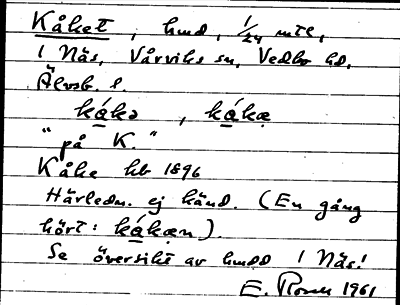 Kåket, hmd, 1/24 mtl,
i Näs, Vårviks sn, Vedbo hd,
Älvsb. l.
kåkə, kåkæ
"på K."
Kåke hb 1896
Härledn. ej känd. (En gång
hört: kåkæn).
Se översikt av hmdd i Näs!
E. Rosen 1961